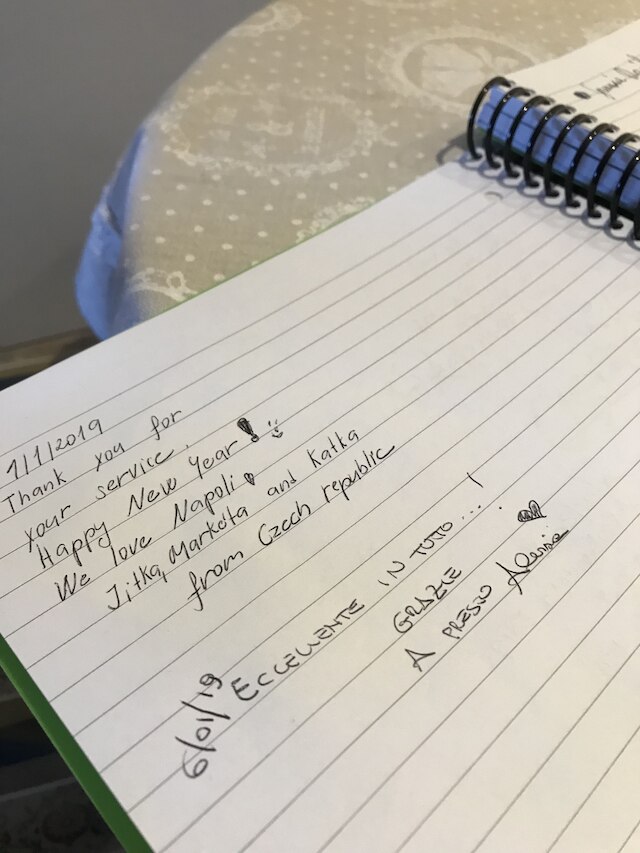 1/1/2019
Thank you for
your service.
Happy New Year!
We love Napoli
Jitka, Markéta and Katka
from Czech republic
6/01/19 ECCELLENTE IN TUTTO...!
GRAZIE
A PRESTO